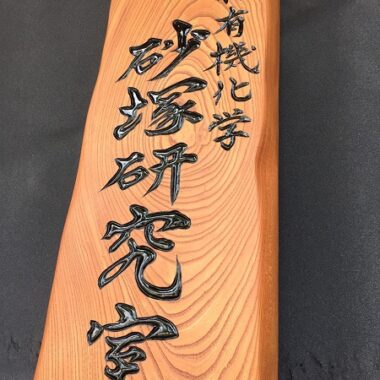 有機化学
砂塚研究室